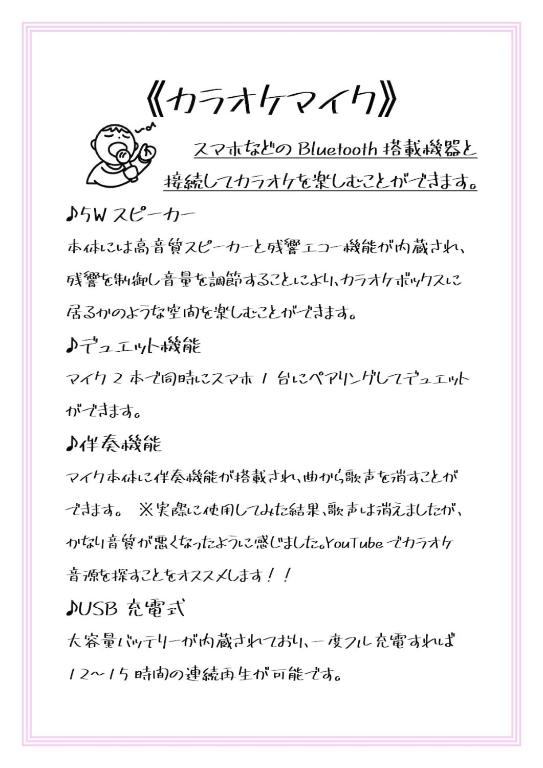 《カラオケマイク》
スマホなどの Bluetooth 搭載機器と
接続してカラオケを楽しむことができます。
♪5W スピーカー
本体には高音質スピーカーと残響エコー機能が内蔵され、
残響を制御し音量を調節することにより、カラオケボックスに
居るかのような空間を楽しむことができます。
♪デュエット機能
マイク 2 本で同時にスマホ 1 台にペアリングしてデュエット
ができます。
♪伴奏機能
マイク本体に伴奏機能が搭載され、曲から歌声を消すことが
できます。 ※実際に使用してみた結果、歌声は消えましたが、
かなり音質が悪くなったように感じました。YouTube でカラオケ
音源を探すことをオススメします！！
♪USB 充電式
大容量バッテリーが内蔵されており、一度フル充電すれば
12～15 時間の連続再生が可能です。